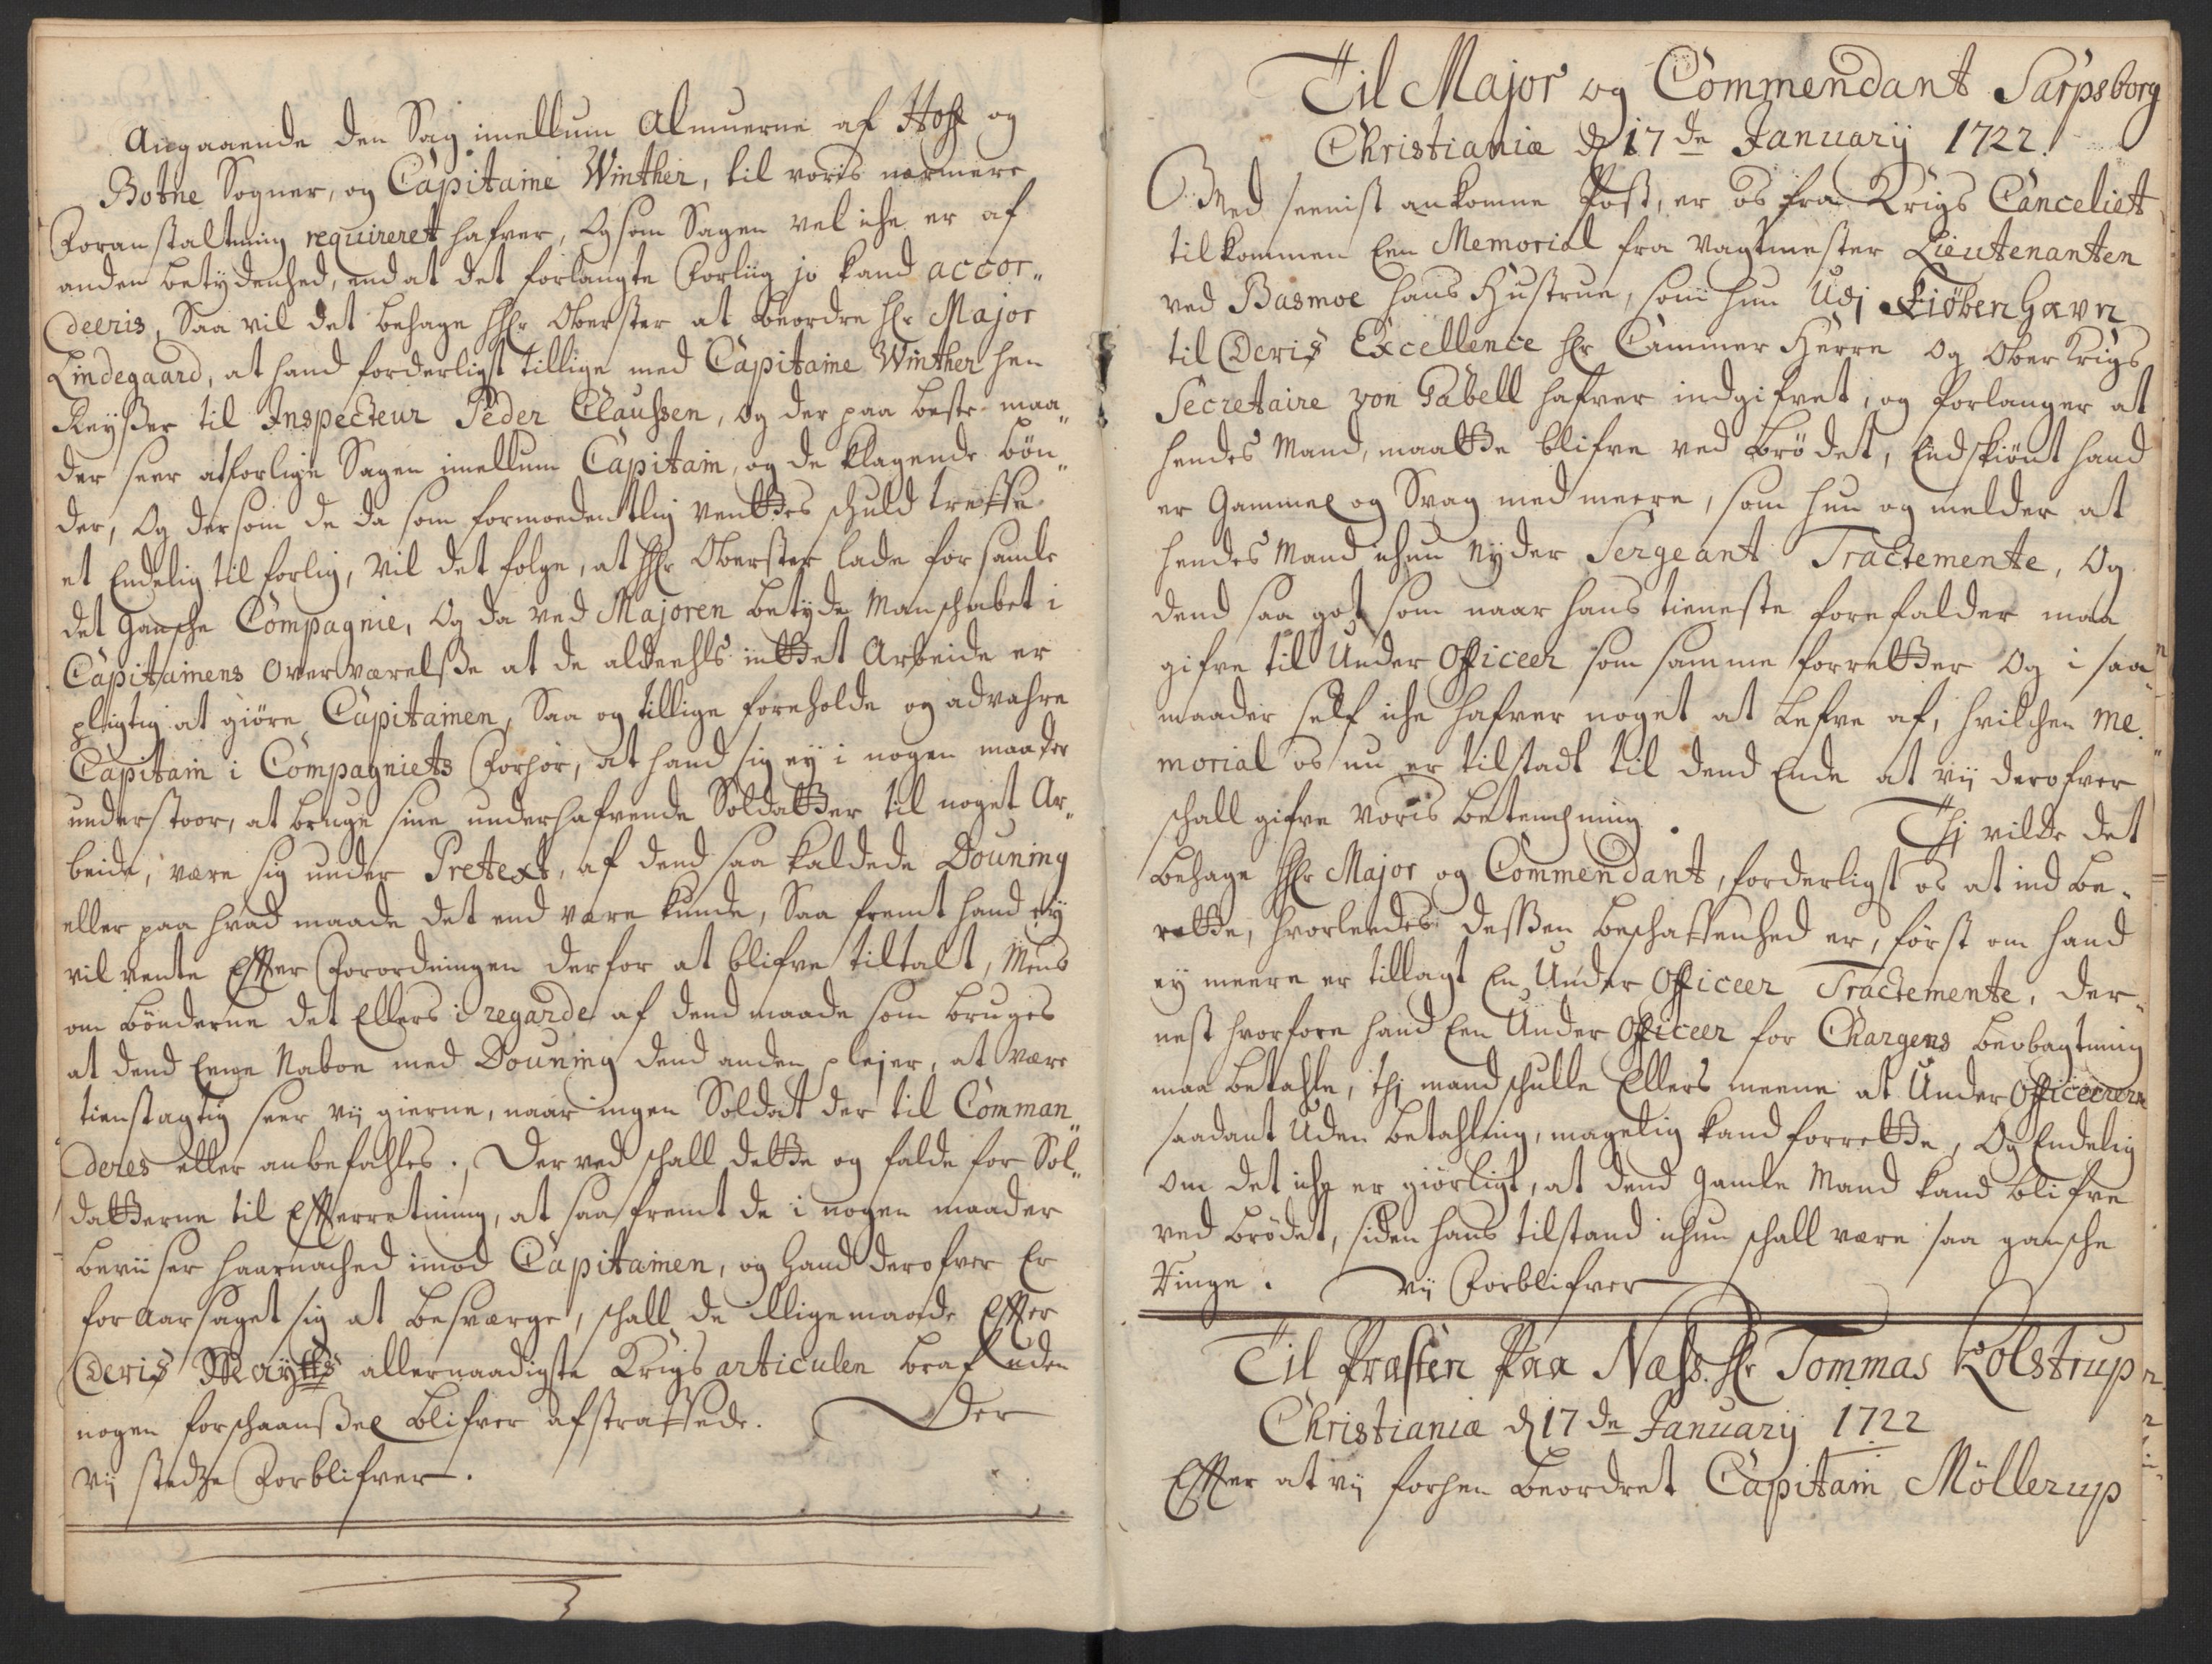 Angaaende den Sag imellum Almuerne af Hoff og
Botne Sogner, og Capitaine Winther, til voris nærmere
Foranstaltning requireret hafver, Og som Sagen vel iche er af
anden betydenhed, end at det forlangte Forliig jo kand accor„
deeris, Saa vil det behage HHr Oberster at beordre Hr Major
Lindegaard, at hand forderligst tillige med Capitaine Winther hen
Reyßer til Inspecteur Peder Claußen, og der paa beste maa„
der seer at forlige Sagen imellum Capitain, og de klagende bön„
der, Og dersom de da som formoedentlig venttes schuld treffe
et Endelig til forlig, vil det folge, at HHr Oberster lade forsamle
det gansche Compagnie, Og da ved Majoren betyde Manschabet i
Capitainens overværelße at de aldeehls inttet Arbeide er
pligtig at giöre Capitainen, Saa og tillige foreholde og advahre
Capitain i Compagniets Forhör, at hand sig ey i nogen maader
understoor, at bruge sine underhafvende Soldatter til noget Ar„
beide, være sig under Pretext, af dend saa kaldede Douning
eller paa hvad maade det end være kunde, Saa fremt hand ey
vil vente Effter Forordningen derfor at blifve tiltalt, Mens
om bönderne det Ellers i regarde af dend maade som bruges
at dend Eene Naboe med Douning dend anden plejer, at være
tienstagtig seer vij gierne, naar ingen Soldat der til Comman„
deres eller anbefahles. Der ved schall dette og falde for Sol„
datterne til Effterretning, at saafremt de i nogen maader
beviiser haarnached imod Capitainen, og hand derofver Er
foraarsaget sig at besværge, schall de illigemaade Effter
Deris Mayts allernaadigste Krigs articulen beaf uden
nogen forschaanßel blifver afstraffede. Der
vij stedze Forblifver.
Til Major og Commendant Sarpsborg
Christiania d 17de January 1722.
Med seeniste ankomne Post, er os fra Krigs Canceliet
tilkommen Een Memorial fra Vagtmester Lieutenanten
ved Basmoe hans Hustrue, som hun Udj Kiöbenhavn
til Deris Excellence Hr Cammer Herre og Ober Krigs
Secretaire von Gabell hafver indgifvet, og forlanger at
hendes Mand, maatte blifve ved brödet, Endskiönt hand
er Gammel og Svag med meere, som hun og melder at
hendes Mand ichun Nyder Sergeant Tractemente, Og
dend saa got som naar hans tieneste forefalder maa
gifve til Under Officeer som samme forretter Og i saa
maader self iche hafver noget at Lefve af, hvilchen me„
morial os nu er tilstadt til dend Ende at vij derofver
schall gifve Voris betenchning. Thj vilde det
behage HHr Major og Commendant, forderligst os at ind be„
rette, hvorleedes deßen beschaffenhed er, först om hand
ey meere er tillagt En Under Officeer Tractemente, der„
nest hvorfore hand Een Under Officeer for Chargens beobagtning
maa betahle, thj mand schulle Ellers meene at Under Officererne
saadant Uden betahling, magelig kand forrette, Og Endelig
om det iche er giörligt, at dend gamle Mand kand blifve
ved brödet, siden hans tilstand ichun schall være saa gansche
Ringe. Vij Forblifver
Til Præsten Paa Næss. Hr Tommas Kolstrup
Christiania d 17de January 1722
Effter at vij forhen beordret Capitain Möllerup